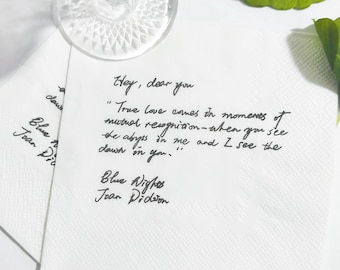 Hey, dear you
"True love comes in moments of
mutual recognition—when you see
the abyss in me and I see the
dawn in you."
Blue Nights
Joan Didion
Blue
Joan